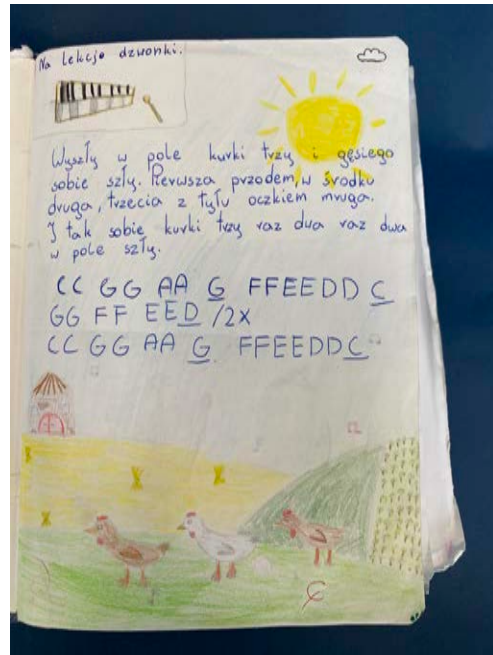 Na lekcję dzwonki.
Wyszły w pole kurki trzy i gęsiego
sobie szły. Pierwsza przodem, w środku
druga, trzecia z tyłu oczkiem mruga.
I tak sobie kurki trzy raz dwa raz dwa
w pole szły.
CC GG AA G FFEEDD C
GG FF EED /2x
CC GG AA G FFEEDDC